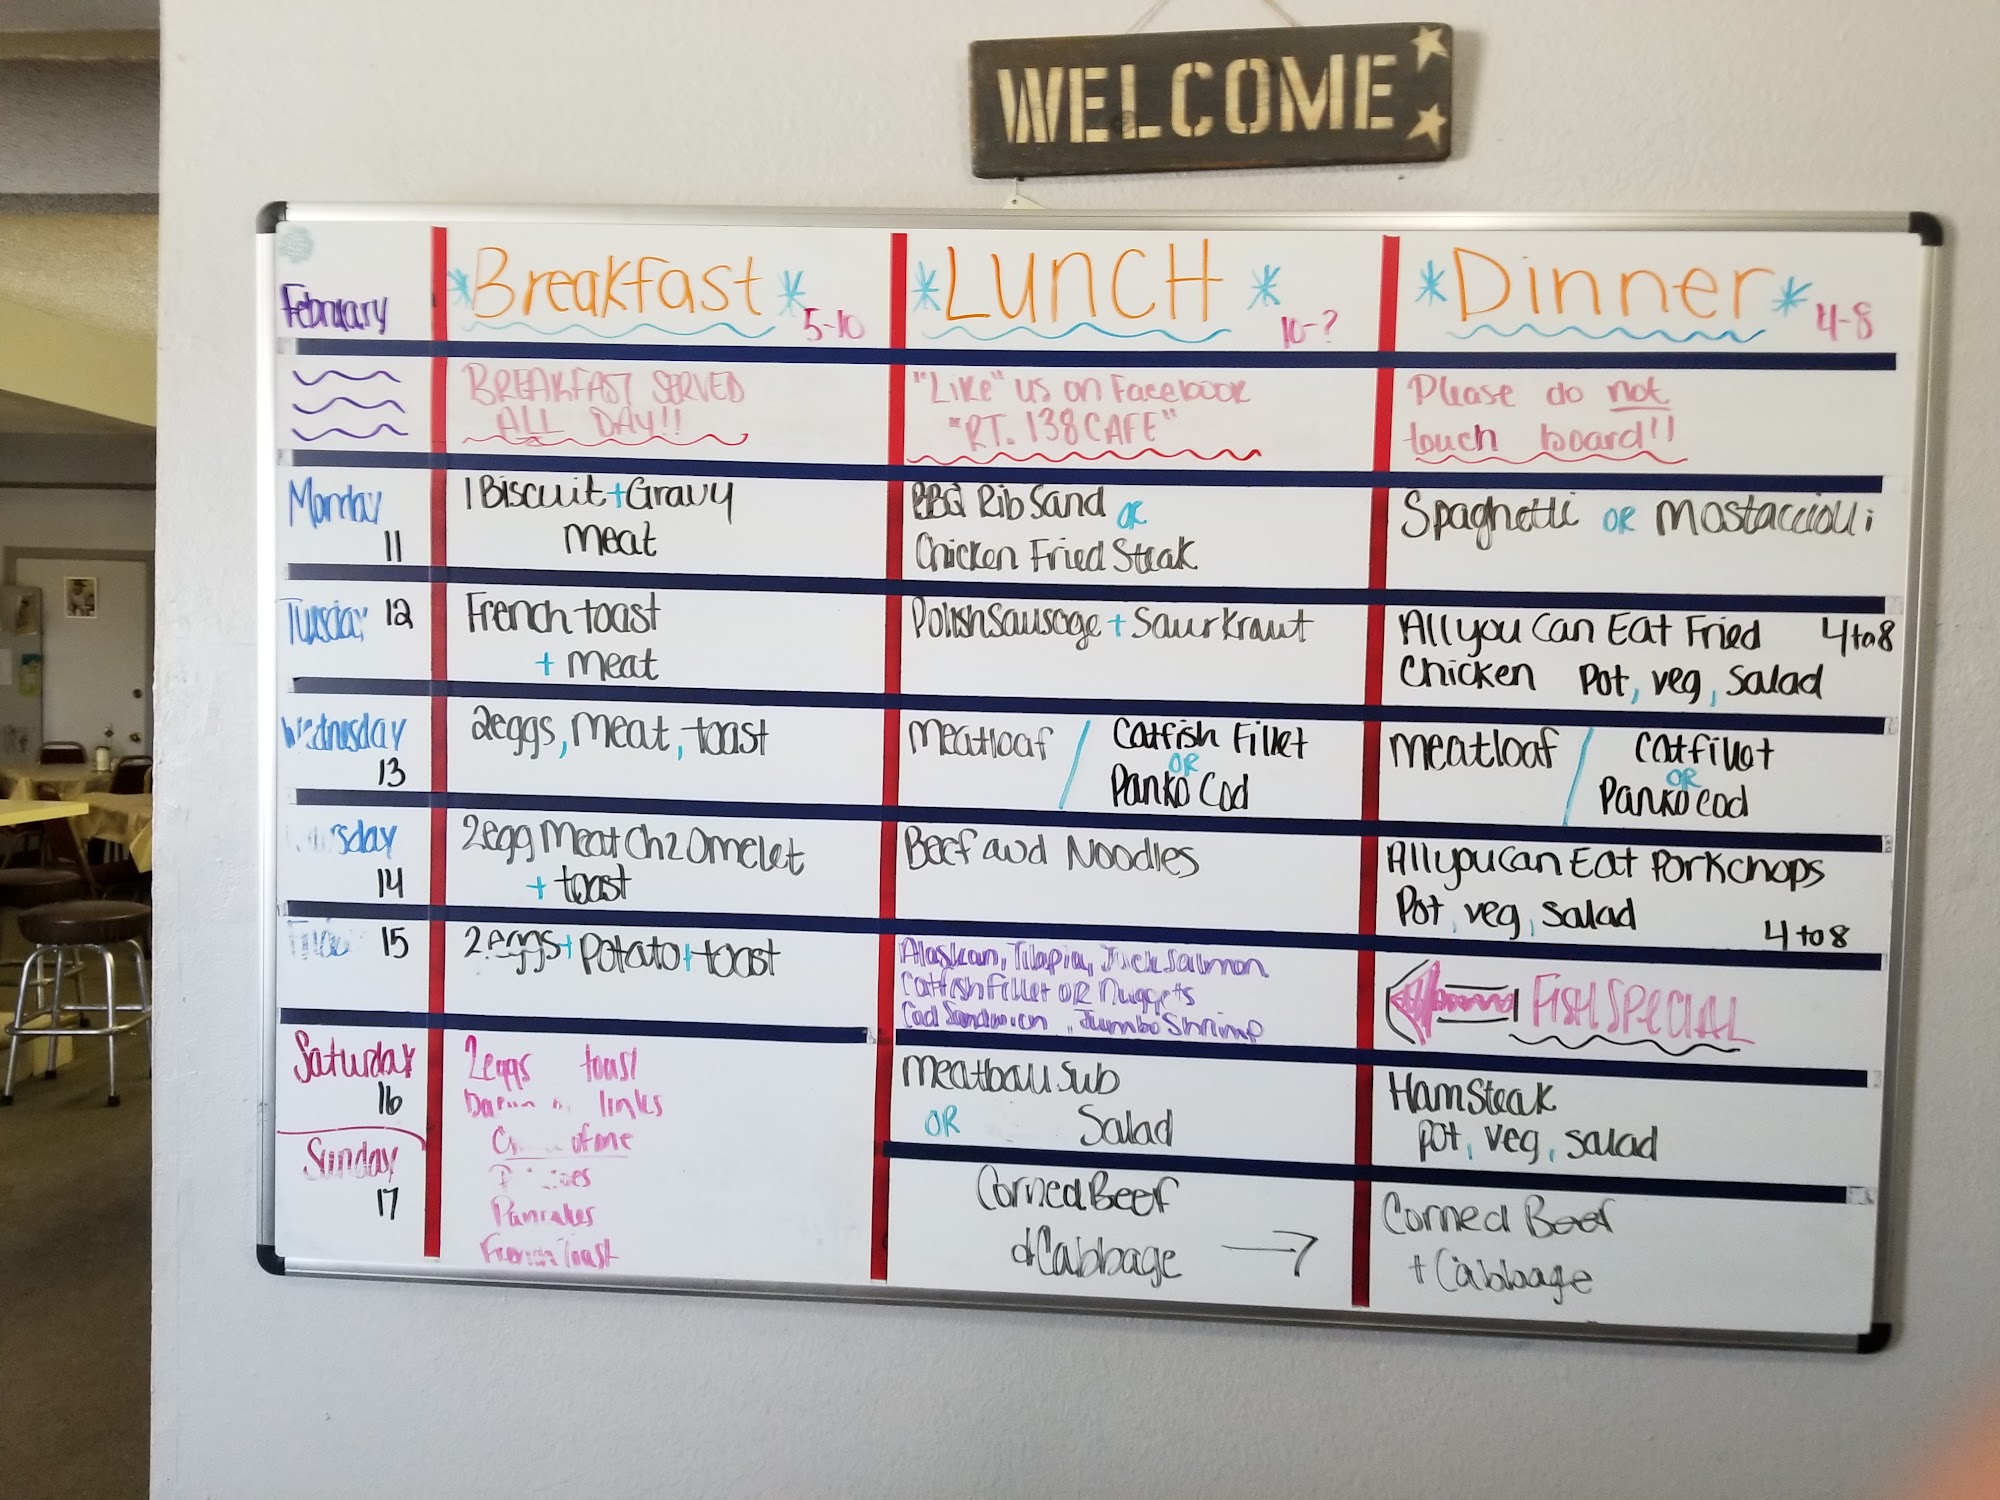 WELCOME
February
*Breakfast* 5-10
*LUNCH* 10-?
*Dinner* 4-8
BREAKFAST SERVED
ALL DAY!!
"Like" us on Facebook
"RT. 138 CAFE"
Please do not
touch board!!
Monday
11
1 Biscuit + Gravy
meat
BBQ Rib Sand OR
Chicken Fried Steak
Spaghetti OR Mostaccioli
Tuesday 12
French toast
+ meat
Polish Sausage + Saurkraut
All you Can Eat Fried 4 to 8
Chicken Pot, veg, Salad
Wednesday
13
2 eggs, meat, toast
Meatloaf / Catfish Fillet
OR
Panko Cod
Meatloaf / Catfillet
OR
Panko Cod
14
2 egg Meat Chz Omelet
+ toast
Beef and Noodles
All you Can Eat Porkchops
Pot, veg, Salad
4 to 8
15
2 eggs + Potato + toast
Alaskan, Tilapia, Jack Salmon
Catfish Fillet OR Nuggets
Cod Sandwich, Jumbo Shrimp
FISH SPECIAL
Saturday
16
2 eggs toast
links
of one
Pancakes
French Toast
Meatball Sub
OR Salad
Ham Steak
pot, veg, salad
Sunday
17
Corned Beef
+ Cabbage
Corned Beef
+ Cabbage